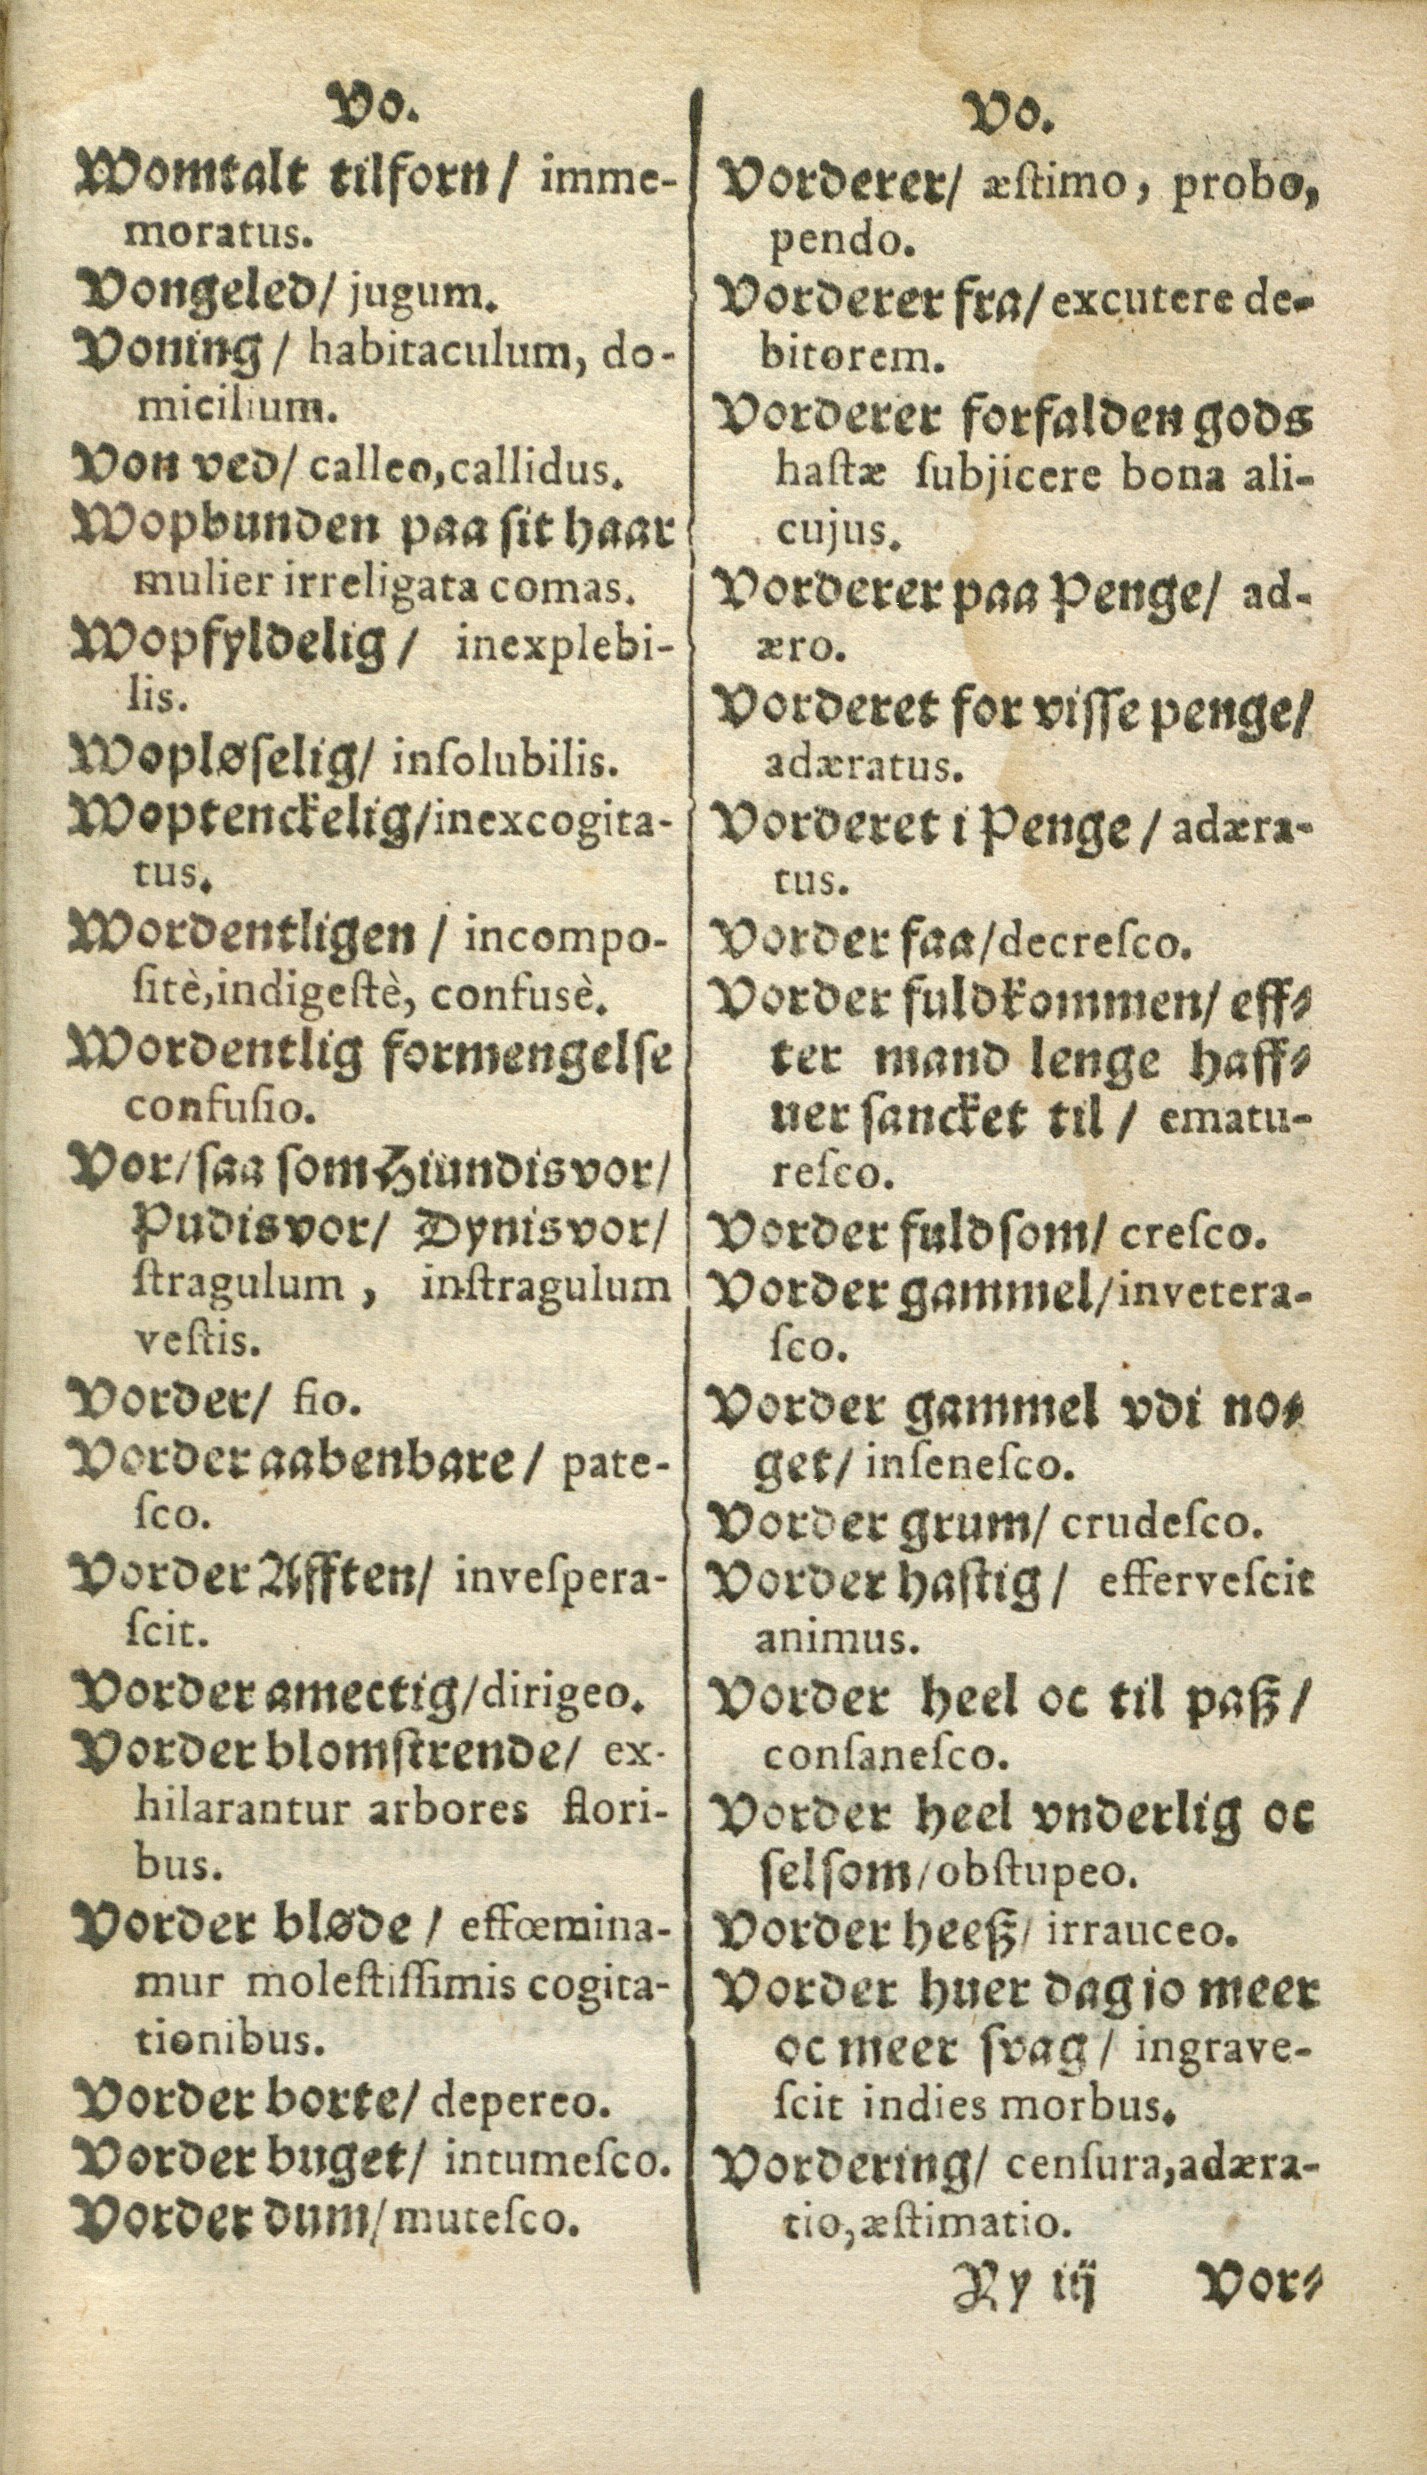 Vo.
Womtalt tilforn/ imme-
moratus.
Vongeled/ jugum.
Voning/ habitaculum, do-
micilium.
Von ved/ calleo, callidus.
Wopbunden paa ſit haar
mulier irreligata comas.
Wopfyldelig/ inexplebi-
lis.
Wopløſelig/ inſolubilis.
Woptenckelig/ inexcogita-
tus.
Wordentligen/ incompo-
ſitè, indigeſtè, confusè.
Wordentlig formengelſe
confuſio.
Vor/ ſaa ſom Hiundisvor/
Pudisvor/ Dynisvor/
ſtragulum, inſtragulum
veſtis.
Vorder/ fio.
Vorder aabenbare/ pate-
ſco.
Vorder Afften/ inveſpera-
ſcit.
Vorder amectig/ dirigeo.
Vorder blomſtrende/ ex-
hilarantur arbores flori-
bus.
Vorder bløde/ effœmina-
mur moleſtiſſimis cogita-
tionibus.
Vorder borte/ depereo.
Vorder buget/ intumeſco.
Vorder dum/ muteſco.
Vo.
Vorderer/ æſtimo, probo,
pendo.
Vorderer fra/ excutere de-
bitorem.
Vorderer forfalden gods
haſtæ ſubjicere bona ali-
cujus.
Vorderer paa Penge/ ad-
æro.
Vorderet for viſſe penge/
adæratus.
Vorderet i Penge/ adæra-
tus.
Vorder faa/ decreſco.
Vorder fuldkommen/ eff-
ter mand lenge haff-
uer ſancket til/ ematu-
reſco.
Vorder fuldſom/ creſco.
Vorder gammel/ invetera-
ſco.
Vorder gammel vdi no-
get/ inſeneſco.
Vorder grum/ crudeſco.
Vorder haſtig/ efferveſcit
animus.
Vorder heel oc til paß/
conſaneſco.
Vorder heel vnderlig oc
ſelſom/ obſtupeo.
Vorder heeß/ irrauceo.
Vorder huer dag jo meer
oc meer ſvag/ ingrave-
ſcit indies morbus.
Vordering/ cenſura, adæra-
tio, æſtimatio.
Ry iij Vor-